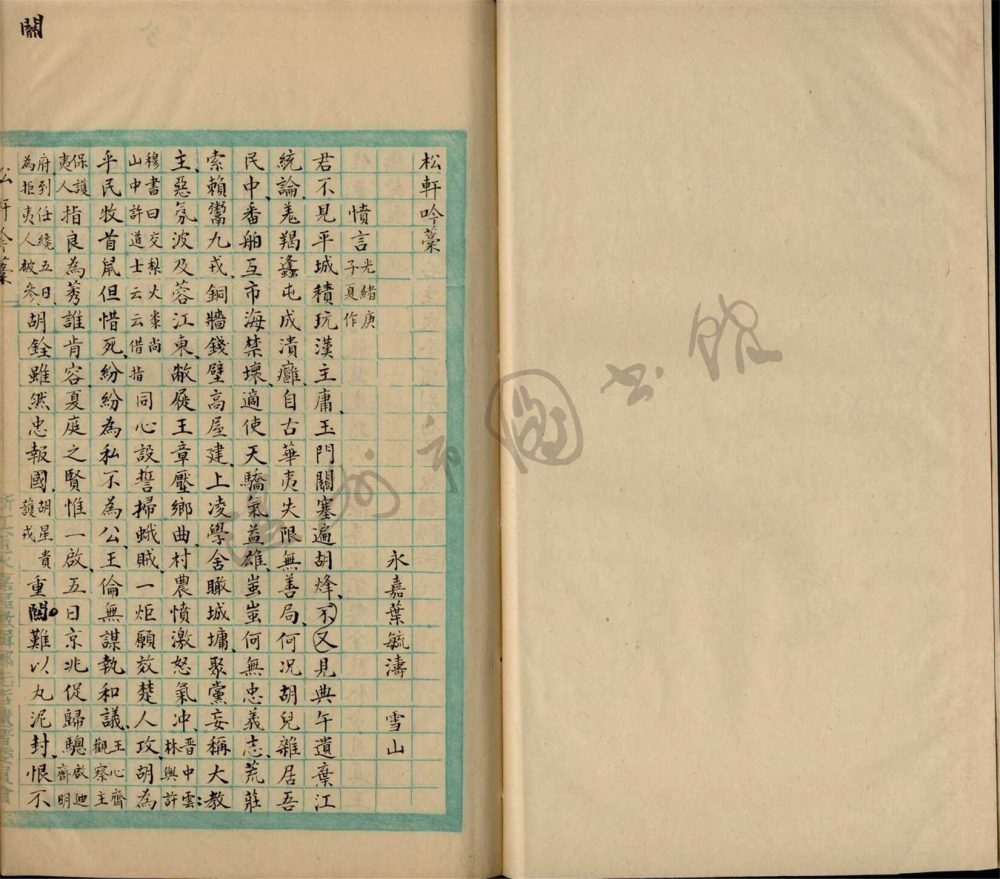 松軒吟藁
永嘉葉毓濤 雪山
憤言 光緒庚子夏作
君不見平城積玩漢主庸玉門關塞遍胡烽不又見典午遺棄江
統論羗羯蠭屯成潰癰自古華夷失限無善局何況胡兒雜居吾
民中番舶互市海禁壞適使天驕氣益雄蚩蚩何無忠義志荒莊
索賴鬻九戎銅牆錢壁高屋建上凌學舍瞰城墉聚黨妄稱大教
主惡氛波及蓉江東敝屣王章壓鄉曲村農憤激怒氣冲 林與許晋中雲
山中許道士云云借指穆書曰交梨火棗尚 同心設誓掃蛾賊一炬願效楚人攻胡為
乎民牧首鼠但惜死紛紛為私不為公王倫無謀執和議 觀察主王心齊
夷人保護 指良為莠誰肯容夏庭之賢惟一啟五日京兆促歸驄 啟迪齊明
為拒夷人被參府到任纔五日 胡銓雖然忠報國 胡星護戎 貴重關難以丸泥封恨不
松軒吟藁 一
關
圖書館